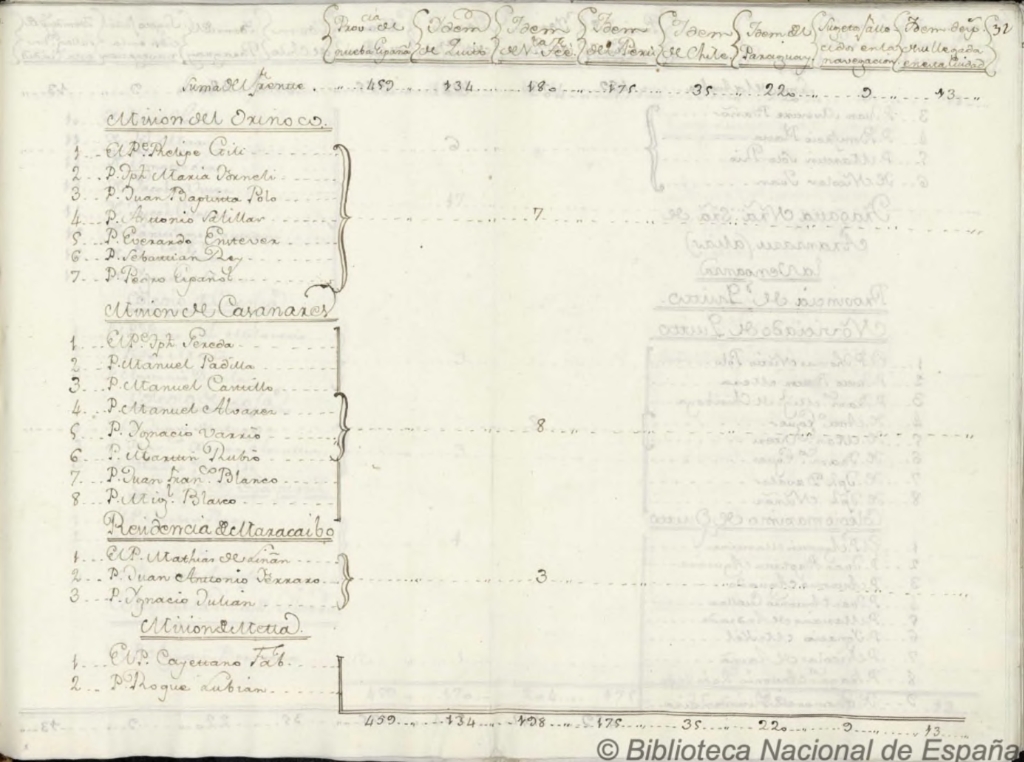 Prov.cia de nueba España | Idem de Quito | Idem de N.a Fee | Idem del Perú | Idem de Chile | Idem del Paraguay | Sugetos falle cidos en la navegacion | Idem desp.s de su llegada en esta ciudad | 32
Suma del frente 459 134 180 175 35 22 9 13
Mision del Orinoco.
1 El P.e Phelipe Gili
2 P. Jph Maria Forneli
3 P. Juan Baptista Polo
4 P. Antonio Salillas 7
5 P. Everardo
6 P. Sebastian Rey
7 P. Pedro Español
Mision de Casanares
1 El P.e Jph Pereda
2 P. Manuel Padilla
3 P. Manuel Castillo
4 P. Manuel Alvarez
5 P. Ygnacio Varrio 8
6 P. Martin Rubio
7 P. Juan Fran.co Blanco
8 P. Mig.l Blasco
Residencia de Maracaibo
1 El P. Mathias de Liñan
2 P. Juan Antonio Ferraro 3
3 P. Ygnacio Julian
Mision de Metta.
1 El P. Cayettano
2 P. Roque Lubian
459 134 198 175 35 22 9 13
© Biblioteca Nacional de España